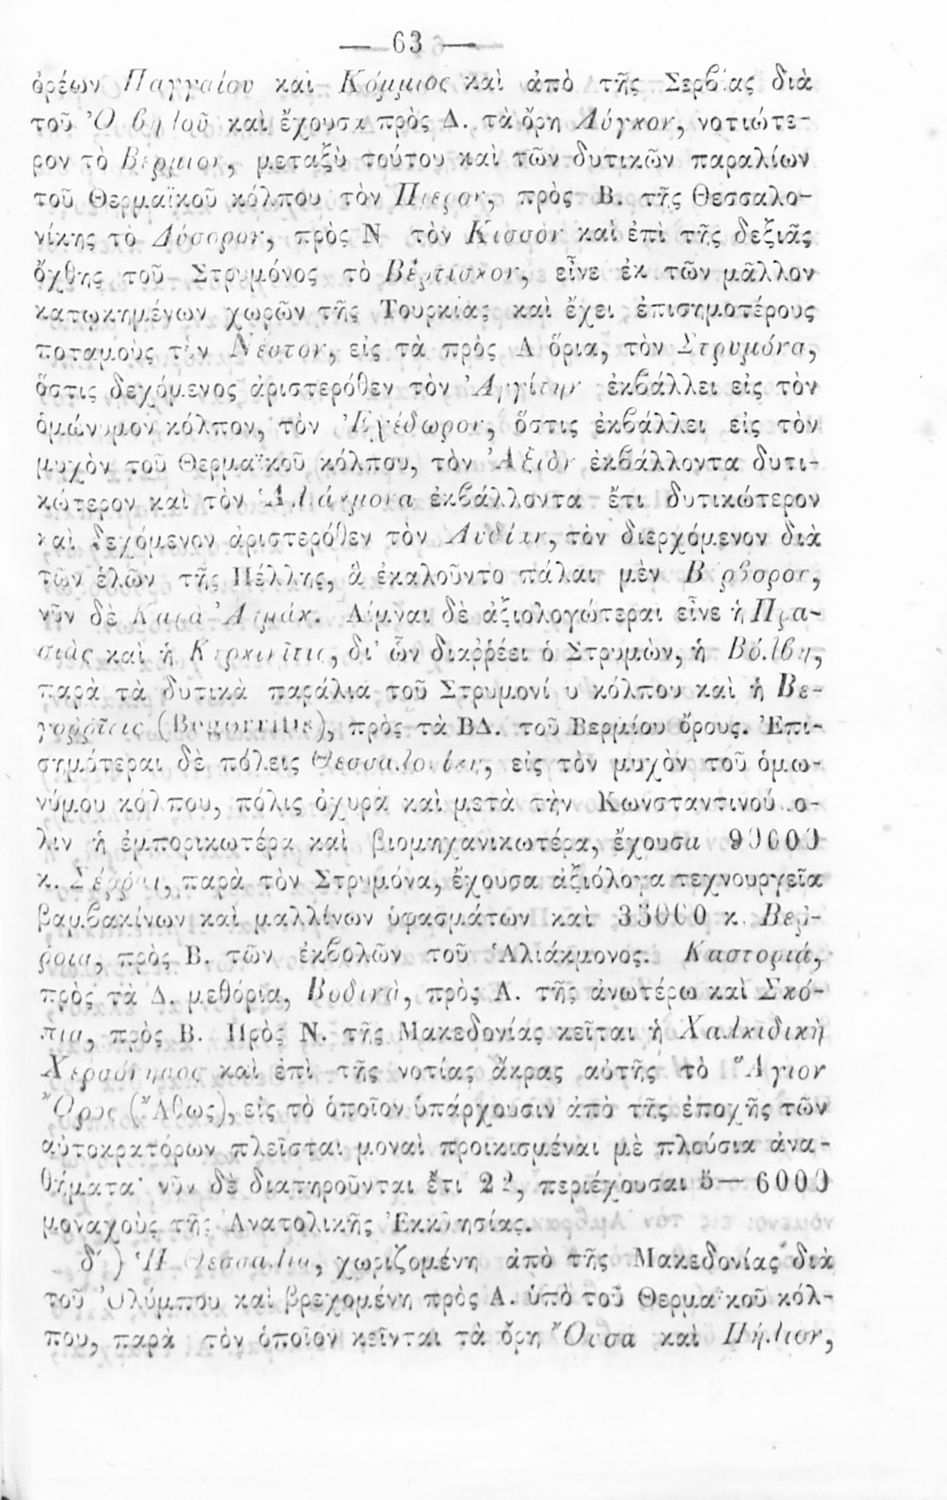 — 63 —
ὀρέων Παγγαίου καὶ Κόμμιος καὶ ἀπὸ τῆς Σερβίας διὰ
τοῦ Ὀρβήλου καὶ ἔχουσα πρὸς Δ. τὰ ὄρη Λύγκον, νοτιώτε-
ρον τὸ Βέρμιον, μεταξὺ τούτου καὶ τῶν δυτικῶν παραλίων
τοῦ Θερμαϊκοῦ κόλπου τὸν Πίερον, πρὸς Β. τῆς Θεσσαλο-
νίκης τὸ Δύσορον, πρὸς Ν τὸν Κισσὸν καὶ ἐπὶ τῆς δεξιᾶς
ὄχθης τοῦ Στρυμόνος τὸ Βέρτισκον, εἶνε ἐκ τῶν μᾶλλον
κατῳκημένων χωρῶν τῆς Τουρκίας καὶ ἔχει ἐπισημοτέρους
ποταμοὺς τὸν Νέστον, εἰς τὰ πρὸς Α ὅρια, τὸν Στρυμόνα,
ὅστις δεχόμενος ἀριστερόθεν τὸν Ἀγγίτην ἐκβάλλει εἰς τὸν
ὁμώνυμον κόλπον, τὸν Ἐχέδωρον, ὅστις ἐκβάλλει εἰς τὸν
μυχὸν τοῦ Θερμαϊκοῦ κόλπου, τὸν Ἀξιὸν ἐκβάλλοντα δυτι-
κώτερον καὶ τὸν Ἁλιάκμονα ἐκβάλλοντα ἔτι δυτικώτερον
καὶ δεχόμενον ἀριστερόθεν τὸν Λυδίαν, τὸν διερχόμενον διὰ
τῶν ἑλῶν τῆς Πέλλης, ἃ ἐκαλοῦντο πάλαι μὲν Βόρβορος,
νῦν δὲ Καρὰ Ἀσμάκ. Λίμναι δὲ ἀξιολογώτεραι εἶνε ἡ Πρα-
σιὰς καὶ ἡ Κερκινῖτις, δι' ὧν διαῤῥέει ὁ Στρυμὼν, ἡ Βόλβη,
παρὰ τὰ δυτικὰ παράλια τοῦ Στρυμονίου κόλπου καὶ ἡ Βε-
γοῤῥῖτις (Begorritis), πρὸς τὰ ΒΔ. τοῦ Βερμίου ὄρους. Ἐπι-
σημότεραι δὲ πόλεις Θεσσαλονίκη, εἰς τὸν μυχὸν τοῦ ὁμω-
νύμου κόλπου, πόλις ὀχυρὰ καὶ μετὰ τὴν Κωνσταντινούπο-
λιν ἡ ἐμπορικωτέρα καὶ βιομηχανικωτέρα, ἔχουσα 90000
κ. Σέῤῥαι, παρὰ τὸν Στρυμόνα, ἔχουσα ἀξιόλογα τεχνουργεῖα
βαμβακίνων καὶ μαλλίνων ὑφασμάτων καὶ 35000 κ. Βέῤ-
ροια, πρὸς Β. τῶν ἐκβολῶν τοῦ Ἁλιάκμονος. Καστοριά,
πρὸς τὰ Δ. μεθόρια, Βοδινὰ, πρὸς Α. τῆς ἀνωτέρω καὶ Σκό-
πια, πρὸς Β. Πρὸς Ν. τῆς Μακεδονίας κεῖται ἡ Χαλκιδικὴ
Χερσόνησος καὶ ἐπὶ τῆς νοτίας ἄκρας αὐτῆς τὸ Ἅγιον
Ὄρος (Ἄθως), εἰς τὸ ὁποῖον ὑπάρχουσιν ἀπὸ τῆς ἐποχῆς τῶν
αὐτοκρατόρων πλεῖσται μοναὶ προικισμέναι μὲ πλούσια ἀνα-
θήματα· νῦν δὲ διατηροῦνται ἔτι 22, περιέχουσαι 5—6000
μοναχοὺς τῆς Ἀνατολικῆς Ἐκκλησίας.
δ') Ἡ Θεσσαλία, χωριζομένη ἀπὸ τῆς Μακεδονίας διὰ
τοῦ Ὀλύμπου καὶ βρεχομένη πρὸς Α. ὑπὸ τοῦ Θερμαϊκοῦ κόλ-
που, παρὰ τὸν ὁποῖον κεῖνται τὰ ὄρη Ὄσσα καὶ Πήλιον,